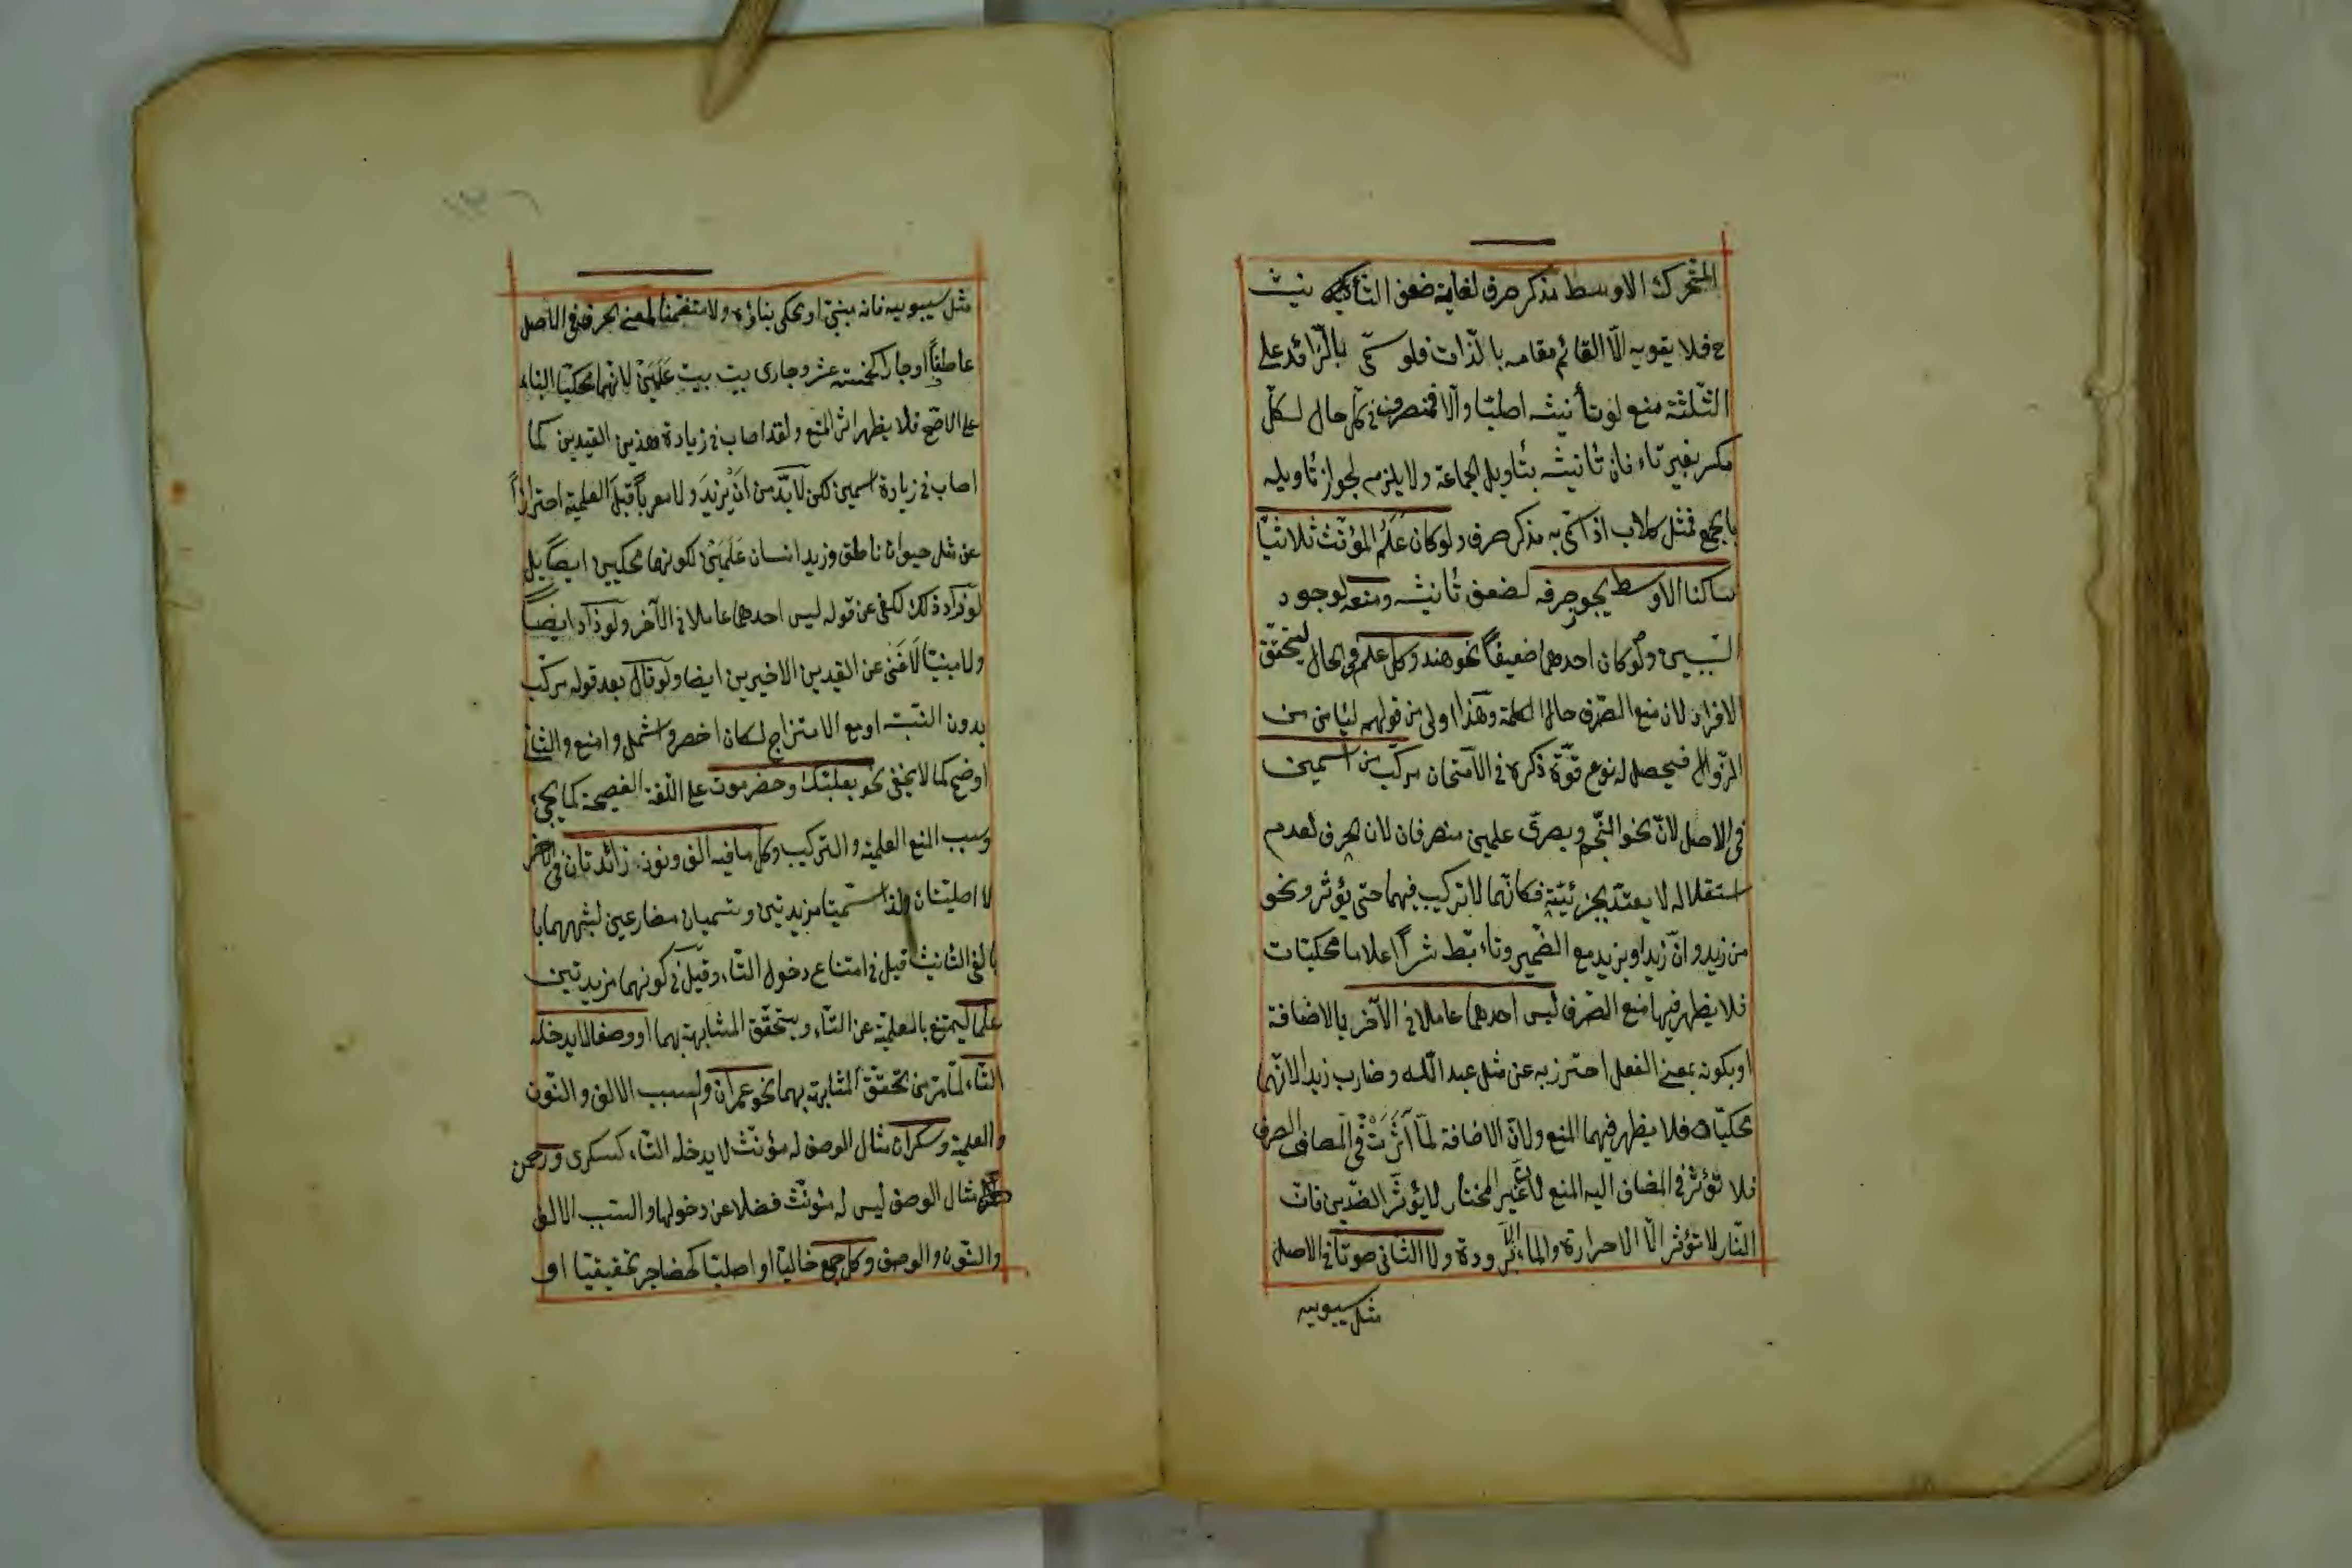 المتحرك الاوسط مذكر صرف لغاية ضعف التأنيث
ح فلا يقويه الّا القائم مقامه بالذات فلو سمّى بالزّائد على
الثّلثة منع لو تأنيثه اصليّا والّا فمنصرف في كلّ حال لكلّ
مكسر بغير تاء فان تانيثه بتأويل الجماعة ولا يلزم لجواز تأويله
بالجمع فمثل كلاب اذا سمّى به مذكر صرف ولو كان عَلَمُ المؤنّث ثلاثيّا
ساكنا الاوسط يجوز صرفه لضعف تأنيثه ومنعه لوجود
السّببين ولو كان احدهما ضعيفاً نحو هند وكل علم في الحال ليتحقّق
الاقران لان منع الصّرف حال الكلمة وهذا اولى من قولهم ليأمن من
الزّوال فيحصل له نوع قوّة ذكره في الامتحان مركّب من اسمين
في الاصل لانّ نحو النّجم وبصرىّ علمين منصرفان لان الحرف لعدم
استقلاله لا يعتدّ بجزئيّته فكانّهما لا تركيب فيهما حتى يؤثر ونحو
من زيد وانّ زيدا ويزيد مع الضّمير وتاء بّط شرّاً اعلاما محكيّات
فلا يظهر فيها منع الصّرف ليس احدهما عاملا في الآخر بالاضافة
او بكونه بمعنى الفعل احترز به عن مثل عبد اللّه وضارب زيدا لانّهما
محكيّان فلا يظهر فيهما المنع ولانّ الاضافة لمّا اَثَّرَتْ في المضاف الصرف
فلا تؤثر في المضاف اليه المنع لانّ غير المختار لا يؤثّر الضّدّين فانّ
النّار لا تؤثر الّا الاحرارة والماء الّا البرودة ولا الثّانى صوتا في الاصل
مثل سيبويه
مثل سيبويه فانه مبنىّ او يحكى بناؤه ولا متضمّنا لمعنى الحرف في الاصل
عاطفاً او جارا كخمسة عشر وجارى بيت بيت عَلَمَيْنِ لانّهما محكيّا البناء
على الاصّح فلا يظهر اثر المنع ولقد اصاب في زيادة هذين القيدين كما
اصاب في زيادة اسمين لكن لا بُدَّ من ان يَزيدَ ولا معرباً قبل العلمية احترازاً
عن مثل حيوان ناطق وزيد انسان عَلَمَيْنِ لكونهما محكيين ايضاً بل
لو زاد ذلك لكفى عن قوله ليس احدهما عاملا في الآخر ولو زاد ايضاً
ولا مبنيّا لَاَغنى عن القيدين الاخيرين ايضا ولو قال بعد قوله مركّب
بدون النّسبة او مع الامتزاج لكان اخصر واشمل وامنع والثّانى
اوضح كما لا يخفى نحو بعلبّك وحضرموت على اللّغة الفصيحة كما يجىء
وسبب المنع العلميّة والتركيب وكل ما فيه الف ونون زائدتان في الآخر
لا اصليّتان ولذا اسمّيتا مزيدتين وتسميان مضارعين لشبههما با
بالفى التأنيث قيل في امتناع دخول التّاء وقيل في كونهما مزيدتين
علما ليمتنع بالعلميّة عن التّاء ويتحقّق المشابهة بهما او وصفا لا يدخله
التّاء لما مرّ من تحقّق المشابهة بهما نحو عمران والسبب الالف والنّون
والعلمية وسكران مثال الوصف له مؤنّث لا يدخله التّاء كسكرى ورحمن
مثال الوصف ليس له مؤنّث فضلا عن دخولها والسّبب الالف
والنّون والوصف وكل جمع خاليّا او اصليّا كحضاجر تحقيقيّا او